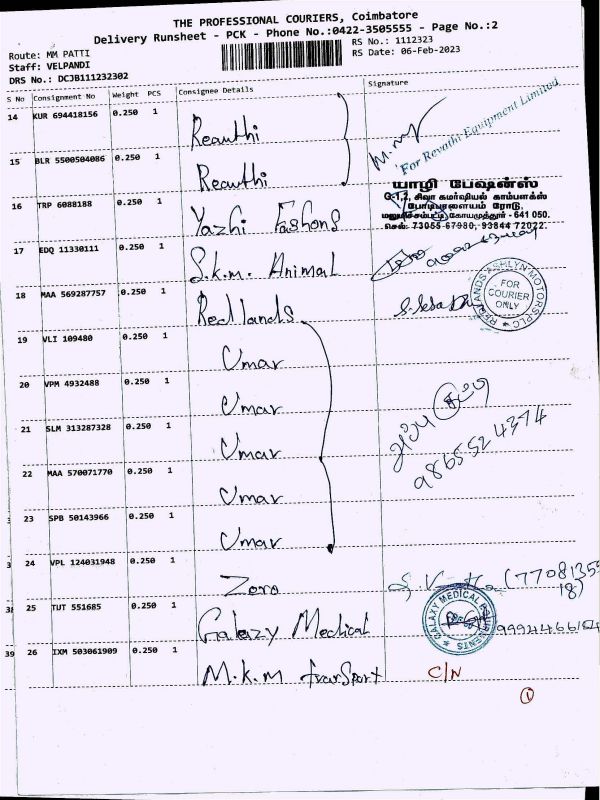 THE PROFESSIONAL COURIERS, Coimbatore
Delivery Runsheet - PCK - Phone No.:0422-3505555 - Page No.:2
Route: MM PATTI
Staff: VELPANDI
DRS No.: DCJB111232302
RS No.: 1112323
RS Date: 06-Feb-2023
S No Consignment No Weight PCS Consignee Details Signature
14 KUR 694418156 0.250 1 Reauthi
For Revathi Equipment Limited
15 BLR 5500504086 0.250 1 Reauthi
16 TRP 6088188 0.250 1 Yazhi Fashons
யாழி பேஷன்ஸ்
G-1,2, சிவா கமர்ஷியல் காம்பளக்ஸ்
போடிபாளையம் ரோடு,
மலுமிச்சம்பட்டி, கோயமுத்தூர் - 641 050.
செல்: 73055 67980, 93844 72022.
17 EDQ 11330111 0.250 1 S.k.m. Animal
18 MAA 569287757 0.250 1 Redlands
REDLANDS ASHLYN MOTORS PLC
FOR
COURIER
ONLY
19 VLI 109480 0.250 1 Umar
20 VPM 4932488 0.250 1 Umar
21 SLM 313287328 0.250 1 Umar
9865524374
22 MAA 570071770 0.250 1 Umar
23 SPB 50143966 0.250 1 Umar
24 VPL 124031948 0.250 1 Zoro
(77081355
18)
25 TUT 551685 0.250 1 Galazy Medical
39 26 IXM 503061909 0.250 1 M.k.m transport C/N
1